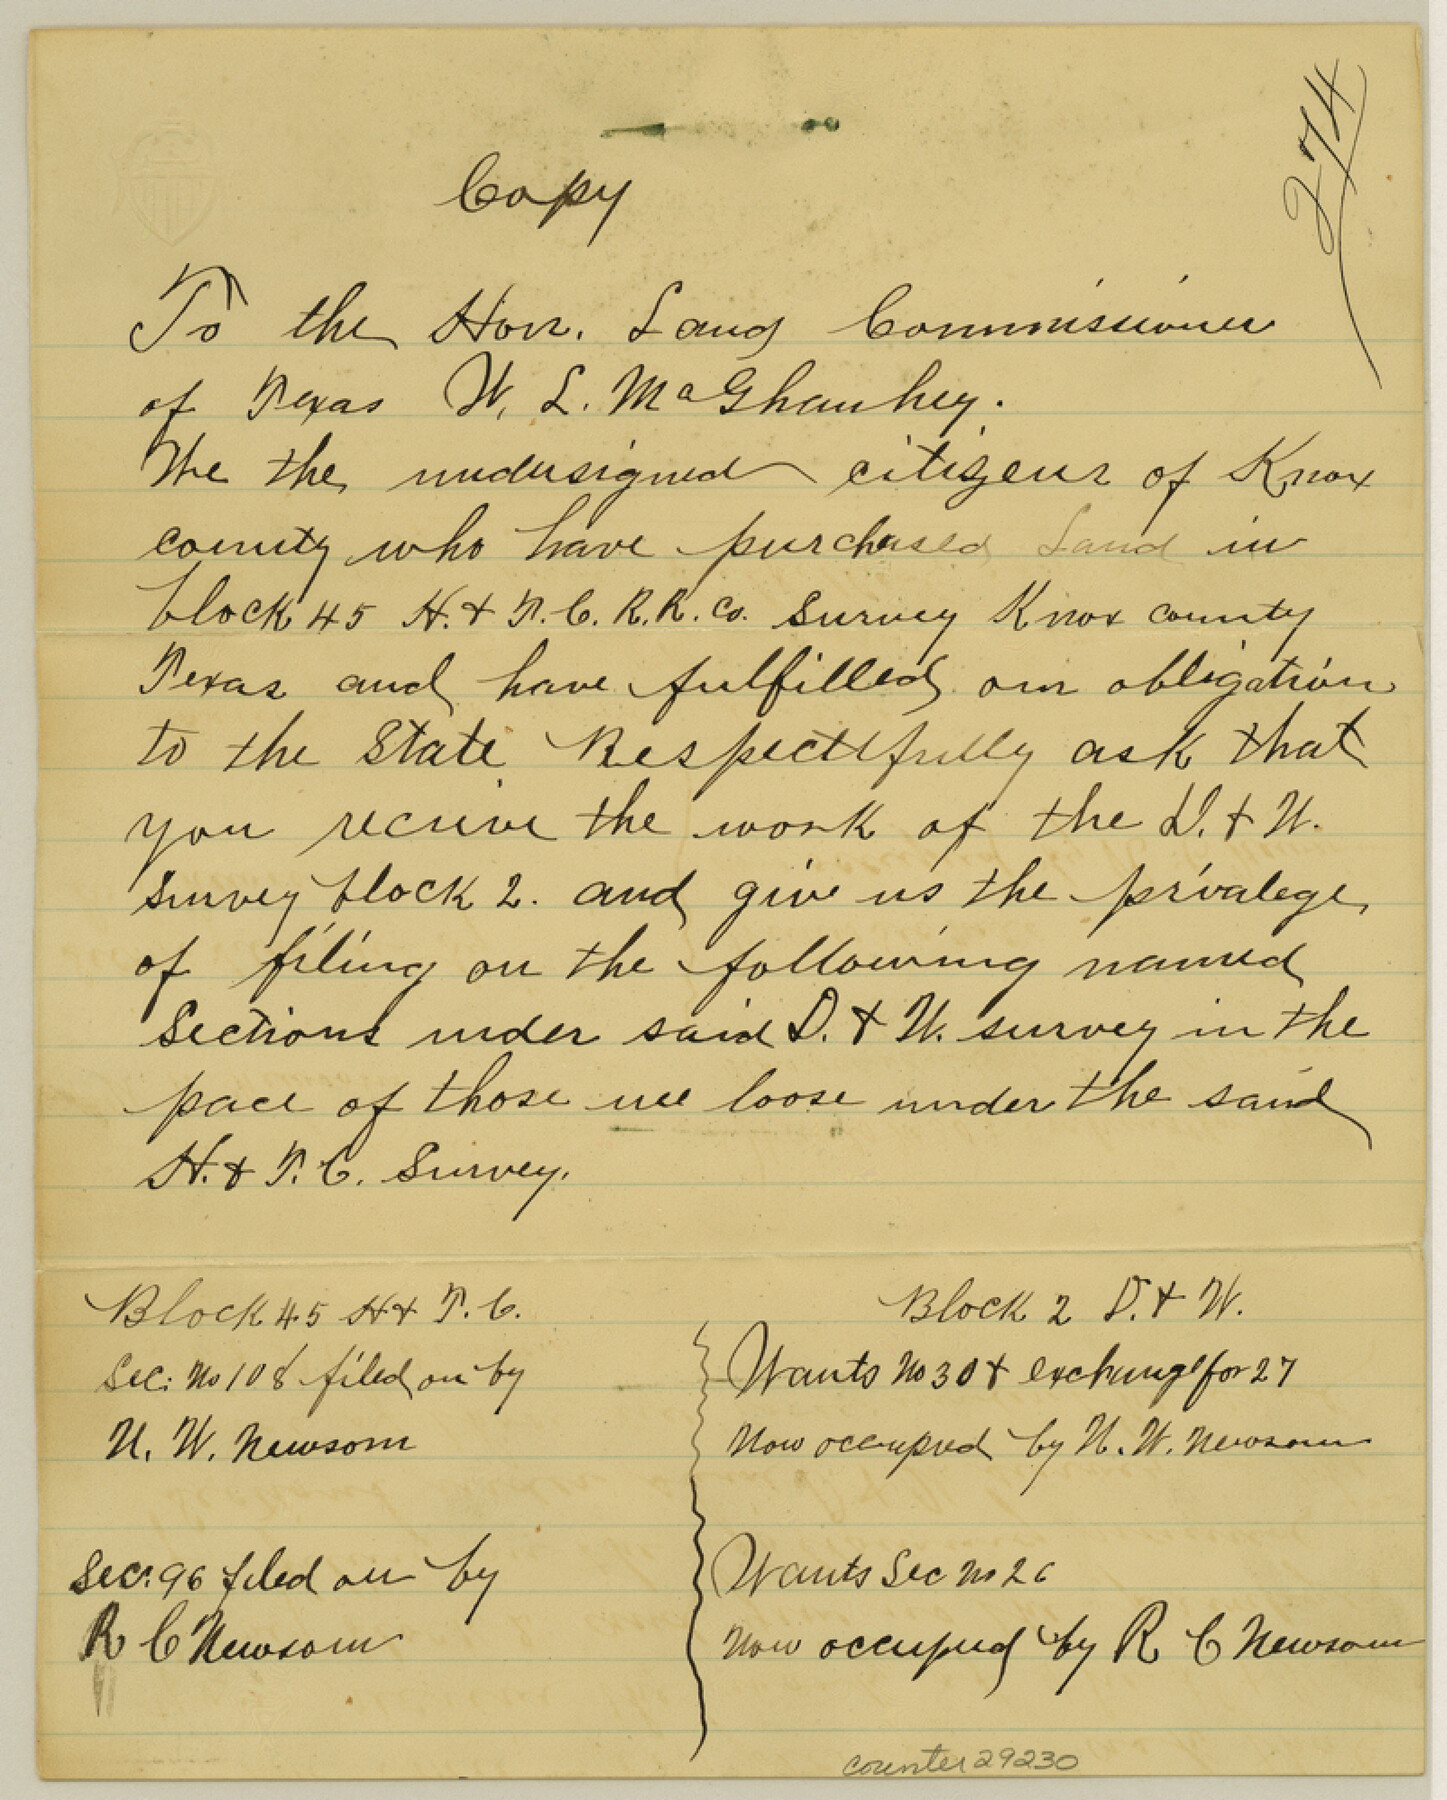 274
Copy
To the Hon. Land Commissioner
of Texas W. L. McGhauhey.
We the undersigned citizens of Knox
county who have purchased Land in
block 45 H. & T. C. R. R. Co. Survey Knox county
Texas and have fulfilled our obligation
to the State Respectifully ask that
you recieve the work of the D. & W.
Survey block 2. and give us the privalege
of filing on the following named
Sections under said D. & W. survey in the
pace of those we loose under the said
H. & T. C. Survey.
Block 45 H & T. C.
Sec: No 108 filed on by
U. W. Newsom
Sec: 96 filed on by
R C Newsom
Block 2 D. & W.
Wants No 30 & exchange for 27
Now occupied by U. W. Newsom
Wants Sec No 26
Now occupied by R C Newsom
counter 29230